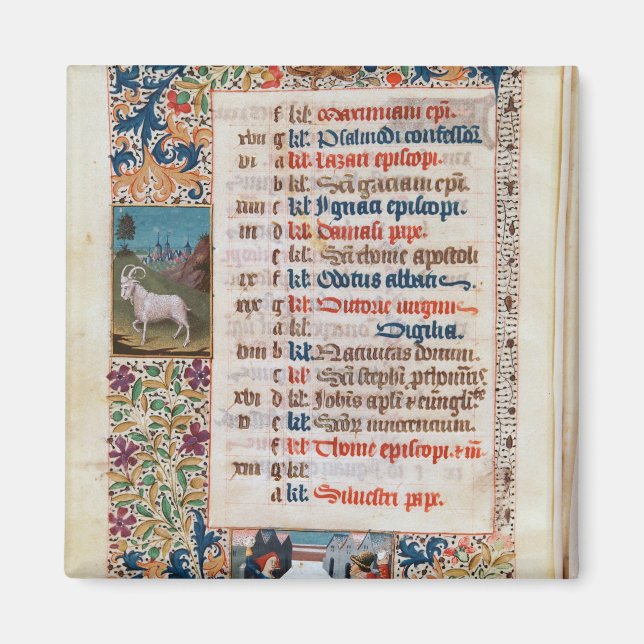 f kł. Maximiani epi.
xvii g kł. Psalmodi confessor
vi a kł. Lazari episcopi.
b kł. Sci gaciani epi.
xiiii c kł. Ignaci episcopi.
iii d kł. Damasi pape.
e kł. Sci thome apostoli
xi f kł. Odotus abbatis
xix g kł. Victorie virginis
a kł. Vigilia.
viii b kł. Nativitas domini.
c kł. Sci stephi
xvi d kł. Johis apli & eungliste
v e kł. Scor innocencium.
f kł. Thome episcopi. & m
xiii g kł.
a kł. Silvestri pape.